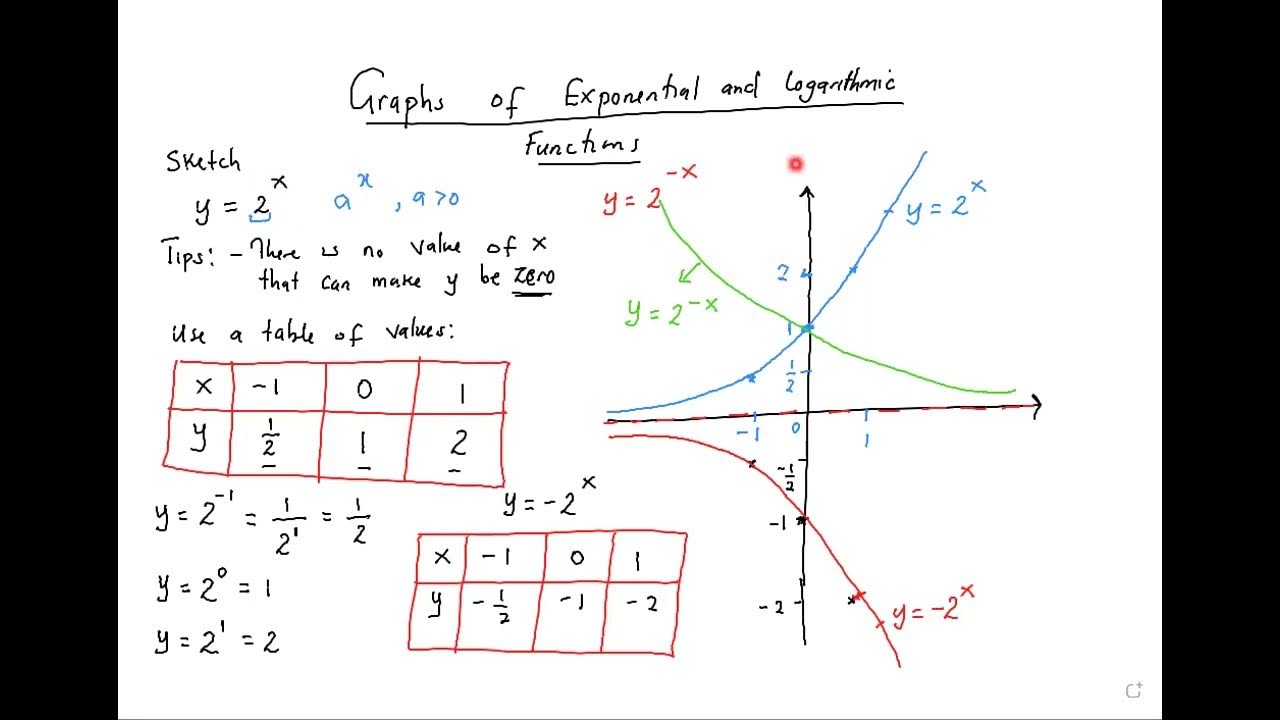 Graphs of Exponential and Logarithmic
Functions
Sketch
y = 2^x a^x , a>0
Tips: - There is no value of x
that can make y be zero
Use a table of values:
x -1 0 1
y 1/2 1 2
y = 2^-1 = 1/2^1 = 1/2
y = 2^0 = 1
y = 2^1 = 2
y = -2^x
x -1 0 1
y -1/2 -1 -2
y = 2^-x
y = 2^x
y = 2^-x
2
1
1/2
-1 0 1
-1/2
-1
-2
y = -2^x